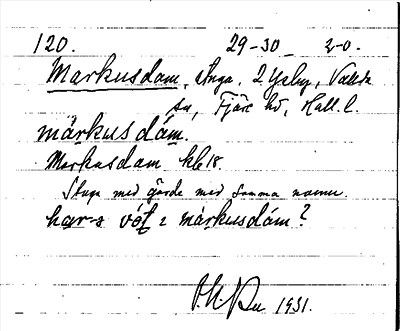 120. 29-30 2-0.
Markusdam, stuga, 2 Ysby, Vallda
sn, Fjäre hd, Hall. l.
márkus dám.
Markusdam kb 18.
Stuga med gärde med samma namn.
har-s vót i márkusdám?
1931.